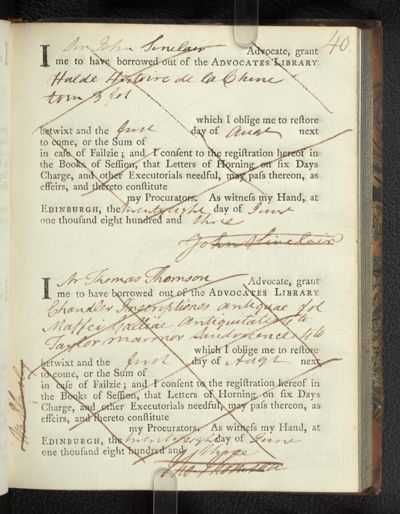 40.
I Sir John Sinclair Advocate, grant
me to have borrowed out of the ADVOCATES LIBRARY
Halde Histoire de la Chine
tom 3 fol
which I oblige me to reſtore
betwixt and the first day of Augt next
to come, or the Sum of
in caſe of Failzie; and I conſent to the regiſtration hereof in
the Books of Seſſion, that Letters of Horning on ſix Days
Charge, and other Executorials needful, may paſs thereon, as
effeirs, and thereto conſtitute
my Procurators. As witneſs my Hand, at
EDINBURGH, the twenty eight day of June
one thouſand eight hundred and three
John Sinclair
I Mr Thomas Thomson Advocate, grant
me to have borrowed out of the ADVOCATES LIBRARY
Chandler Inscriptiones antiquae fol
Maffei Galliae Antiquitates 4to
Taylor Marmor Sandvicense 4to
which I oblige me to reſtore
betwixt and the first day of Augt next
to come, or the Sum of
in caſe of Failzie; and I conſent to the regiſtration hereof in
the Books of Seſſion, that Letters of Horning on ſix Days
Charge, and other Executorials needful, may paſs thereon, as
effeirs, and thereto conſtitute
my Procurators. As witneſs my Hand, at
EDINBURGH, the twenty eight day of June
one thouſand eight hundred and three
Tho Thomson